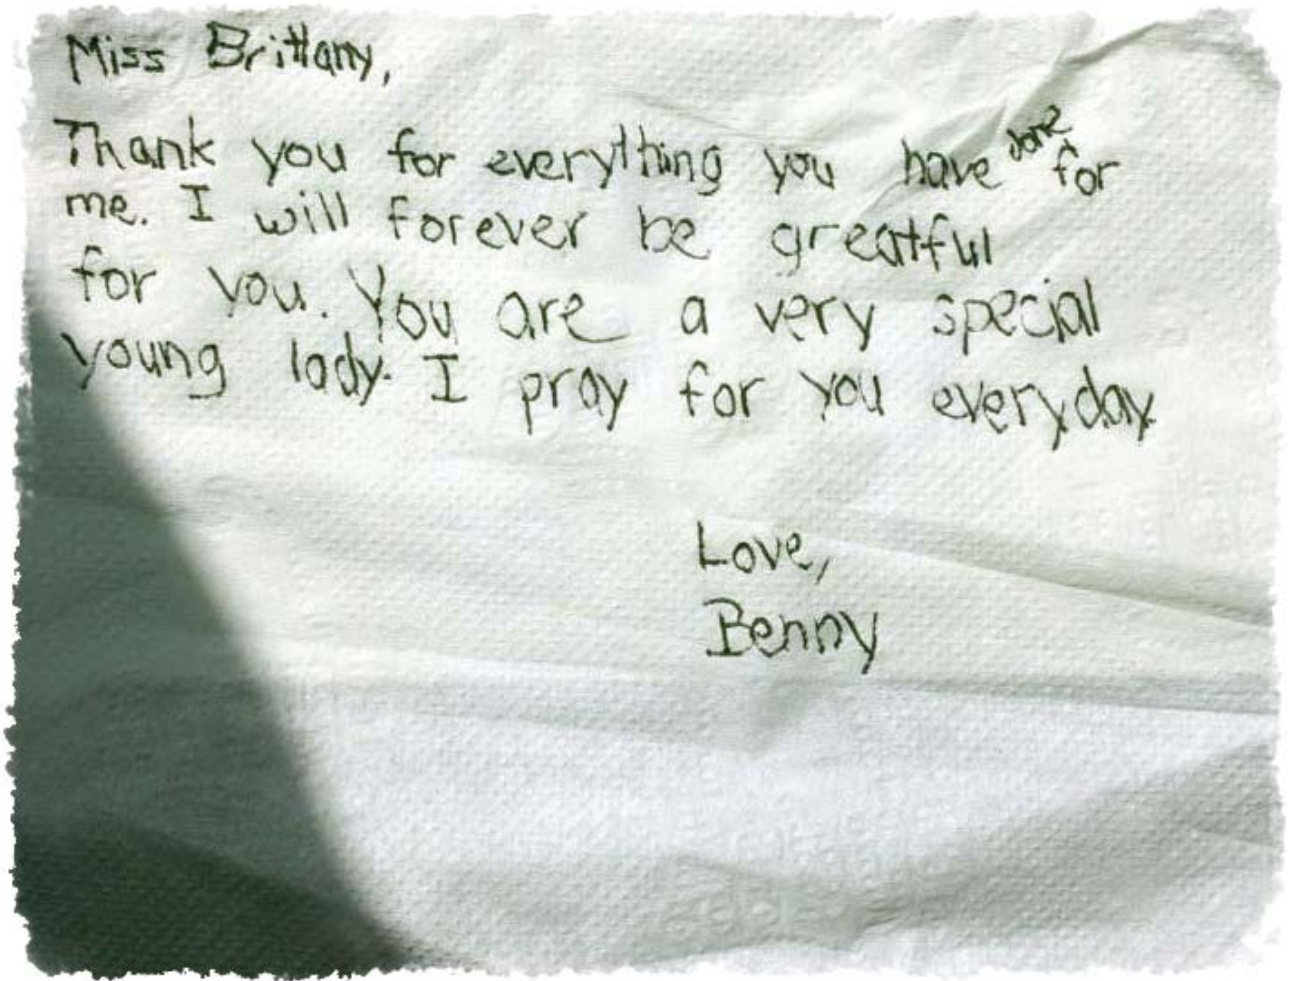 Miss Brittany,
Thank you for everything you have done for
me. I will forever be greatful
for you. You are a very special
young lady. I pray for you everyday.
Love,
Benny